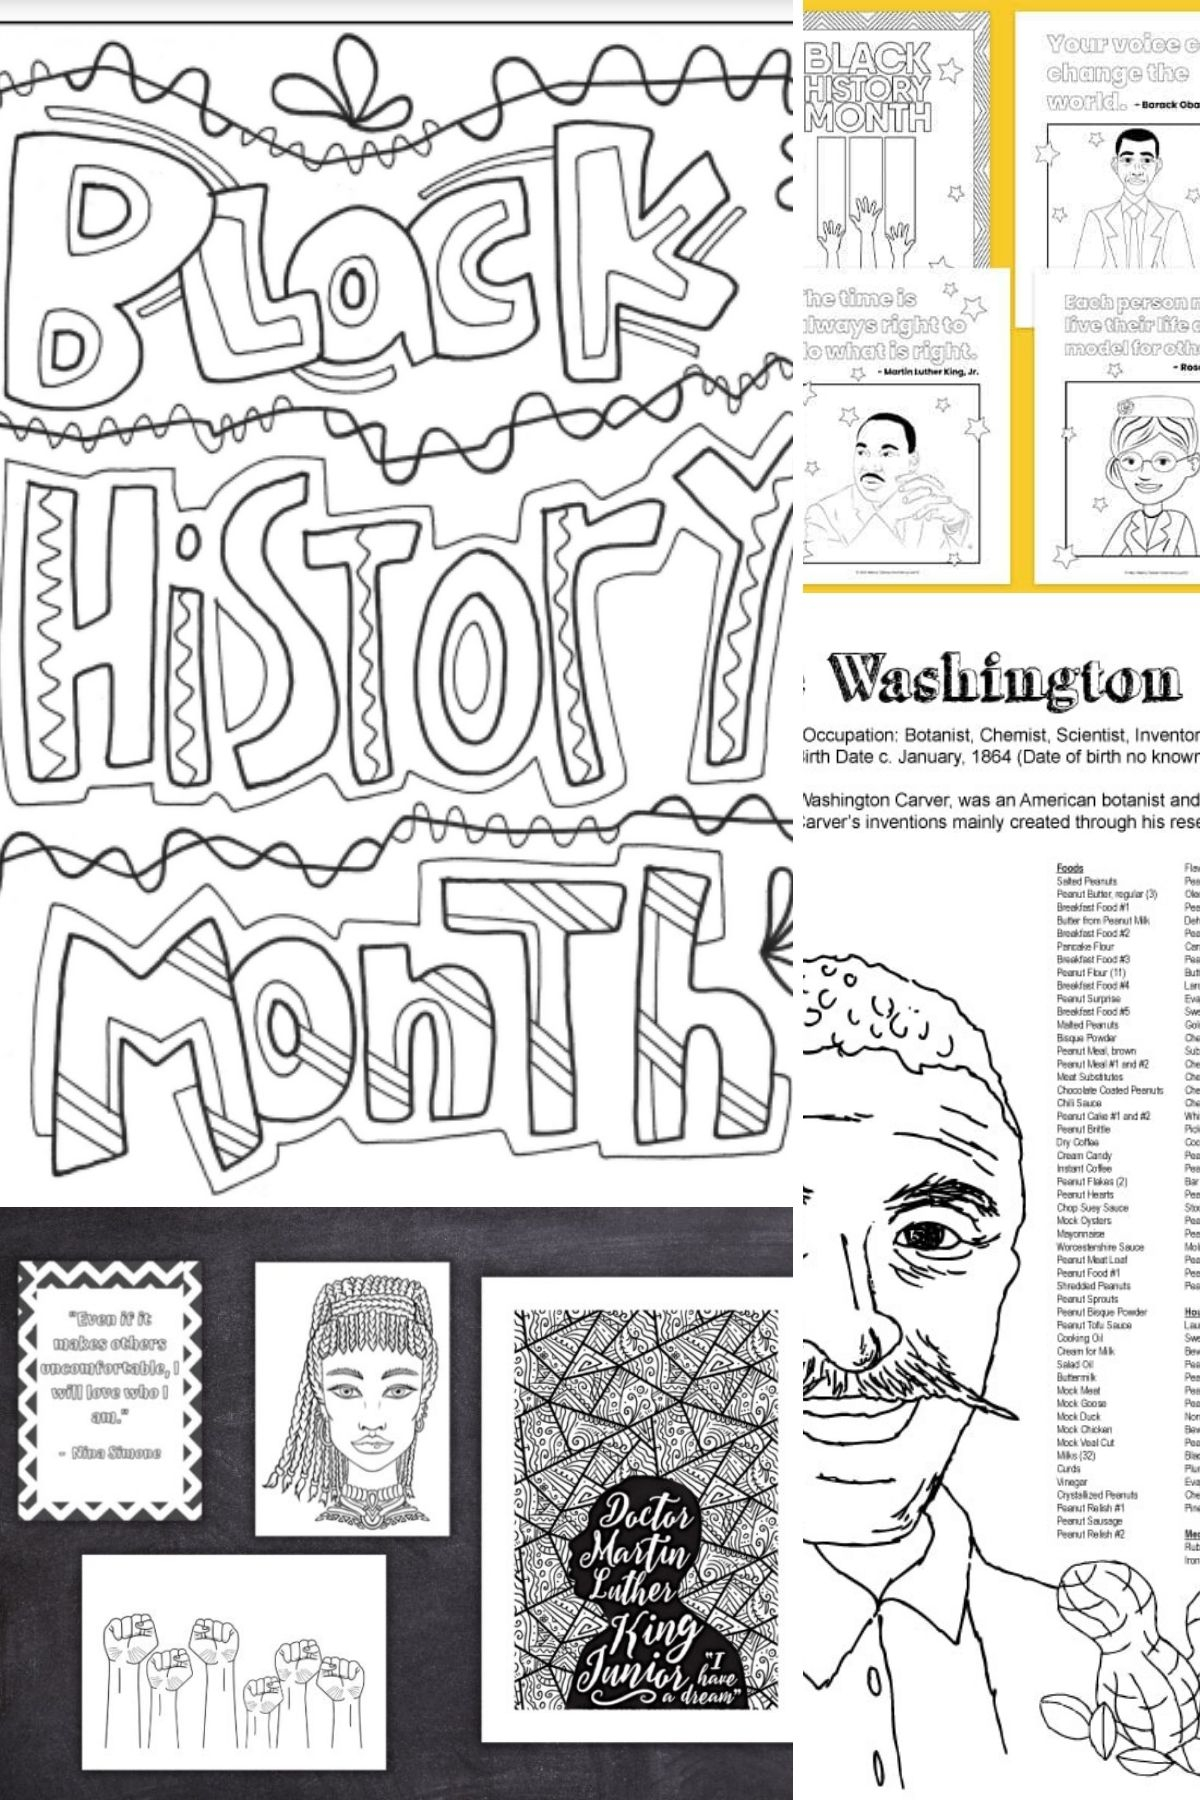 Black
History
Month
BLACK
HISTORY
MONTH
Your voice c
change the
world. - Barack Oba
The time is
always right to
do what is right.
- Martin Luther King, Jr.
Each person m
live their life a
model for oth
- Rosa
e Washington
Occupation: Botanist, Chemist, Scientist, Inventor
Birth Date c. January, 1864 (Date of birth no known
Washington Carver, was an American botanist and
Carver's inventions mainly created through his rese
Foods
Salted Peanuts
Peanut Butter, regular (3)
Breakfast Food #1
Butter from Peanut Milk
Breakfast Food #2
Pancake Flour
Breakfast Food #3
Peanut Flour (11)
Breakfast Food #4
Peanut Surprise
Breakfast Food #5
Malted Peanuts
Bisque Powder
Peanut Meal, brown
Peanut Meal #1 and #2
Meat Substitutes
Chocolate Coated Peanuts
Chili Sauce
Peanut Cake #1 and #2
Peanut Brittle
Dry Coffee
Cream Candy
Instant Coffee
Peanut Flakes (2)
Peanut Hearts
Chop Suey Sauce
Mock Oysters
Mayonnaise
Worcestershire Sauce
Peanut Meat Loaf
Peanut Food #1
Shredded Peanuts
Peanut Sprouts
Peanut Bisque Powder
Peanut Tofu Sauce
Cooking Oil
Cream for Milk
Salad Oil
Buttermilk
Mock Meat
Mock Goose
Mock Duck
Mock Chicken
Mock Veal Cut
Milks (32)
Curds
Vinegar
Crystallized Peanuts
Peanut Relish #1
Peanut Sausage
Peanut Relish #2
"Even if it
makes others
uncomfortable, I
will love who I
am."
- Nina Simone
Doctor
Martin
Luther
King
Junior "I
have
a dream"